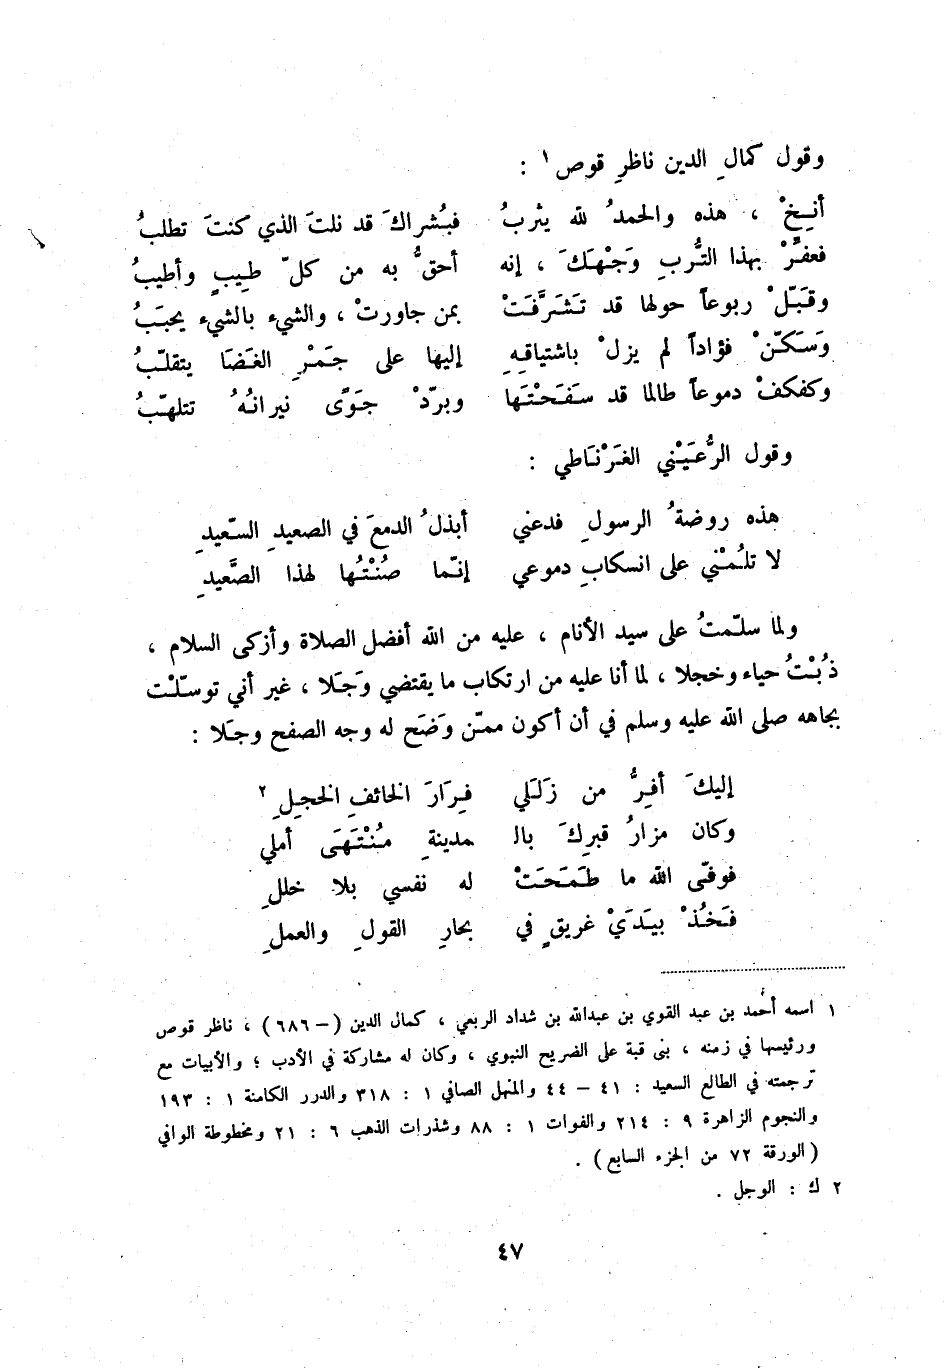 وقول كمالِ الدين ناظرِ قوص ١ :
أنِخْ ، هذه والحمدُ لله يثربُ فبُشراكَ قد نلتَ الذي كنتَ تطلبُ
فعفِّرْ بهذا التُّربِ وَجْهَكَ ، إنه أحقُّ به من كلّ طِيبٍ وأطيبُ
وقَبّلْ ربوعاً حولها قد تَشَرَّفَتْ بمن جاورتْ ، والشيء بالشيء يحبَبُ
وَسَكّنْ فؤاداً لم يزلْ باشتياقِهِ إليها على جَمْرِ الغَضَا يتقلّبُ
وكفكفْ دموعاً طالما قد سَفَحْتَها وبرّدْ جَوًى نيرانُهُ تتلهّبُ
وقول الرُّعَيْني الغَرْنَاطي :
هذه روضةُ الرسولِ فدعني أبذلُ الدمعَ في الصعيدِ السّعيدِ
لا تلُمْني على انسكابِ دموعي إنّما صُنْتُها لهذا الصَّعيدِ
ولما سلّمتُ على سيد الأنام ، عليه من الله أفضل الصلاة وأزكى السلام ،
ذُبْتُ حياء وخجلا ، لما أنا عليه من ارتكاب ما يقتضي وَجَلا ، غير أني توسّلْت
بجاهه صلى الله عليه وسلم في أن أكون ممّن وَضَح له وجه الصفح وجَلا :
إليكَ أفِرُّ من زَلَلي فِرَارَ الخائفِ الخجِلِ ٢
وكان مزارُ قبرِكَ بالـ ـمدينةِ مُنْتَهَى أملي
فوفّى الله ما طَمَحَتْ له نفسي بلا خللِ
فَخُذْ بيَدَيْ غريقٍ في بحارِ القولِ والعملِ
١ اسمه أحمد بن عبد القوي بن عبدالله بن شداد الربعي ، كمال الدين (– ٦٨٦) ، ناظر قوص
ورئيسها في زمنه ، بنى قبة على الضريح النبوي ، وكان له مشاركة في الأدب ؛ والأبيات مع
ترجمته في الطالع السعيد : ٤١ – ٤٤ والمنهل الصافي ١ : ٣١٨ والدرر الكامنة ١ : ١٩٣
والنجوم الزاهرة ٩ : ٢١٤ والفوات ١ : ٨٨ وشذرات الذهب ٦ : ٢١ ومخطوطة الوافي
(الورقة ٧٢ من الجزء السابع) .
٢ ك : الوجل .
٤٧